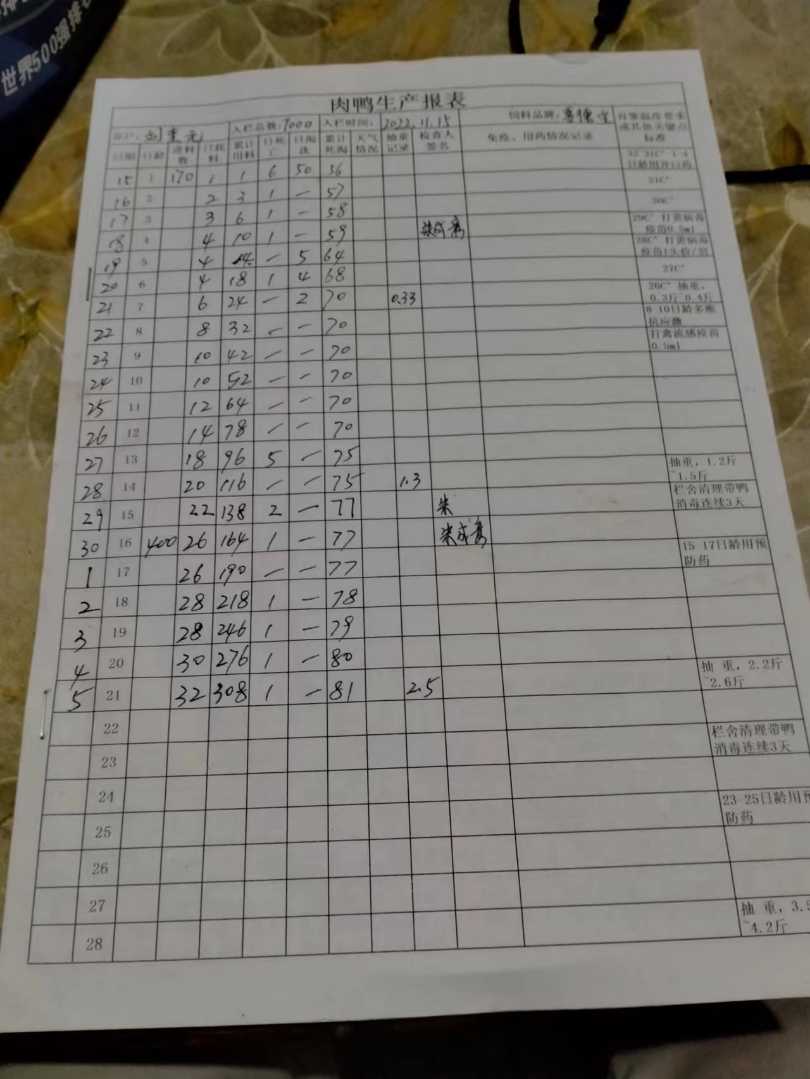 世界500强排
肉鸭生产报表
入栏总数: 7000 入栏时间: 2022.11.15 饲料品牌:
日期 日龄 进料数 日耗料 累计用料 日死亡 日淘汰 累计死淘 天气情况 抽重记录 检查人签名 免疫、用药情况记录 标准
15 1 170 1 1 6 50 56
16 2 2 3 1 - 57 31C°
17 3 3 6 1 - 58 30C°
18 4 4 10 1 - 59 29C° 打黄病毒疫苗0.5ml
19 5 4 14 - 5 64
20 6 4 18 1 4 68 27C°
21 7 6 24 - 2 70 0.33 26C° 抽重, 0.3斤~0.4斤
22 8 8 32 - - 70 8-10日龄多维抗应激
23 9 10 42 - - 70 打禽流感疫苗
24 10 10 52 - - 70
25 11 12 64 - - 70
26 12 14 78 - - 70
27 13 18 96 5 - 75
28 14 20 116 - - 75 1.3 抽重, 1.2斤~1.5斤
29 15 22 138 2 - 77 栏舍清理带鸭消毒连续3天
30 16 400 26 164 1 - 77
1 17 26 190 - - 77 15-17日龄用预防药
2 18 28 218 1 - 78
3 19 28 246 1 - 79
4 20 30 276 1 - 80
5 21 32 308 1 - 81 2.5 抽 重, 2.2斤~2.6斤
22
23 栏舍清理带鸭消毒连续3天
24
25 23-25日龄用预防药
26
27
28 抽 重, 3.5~4.2斤